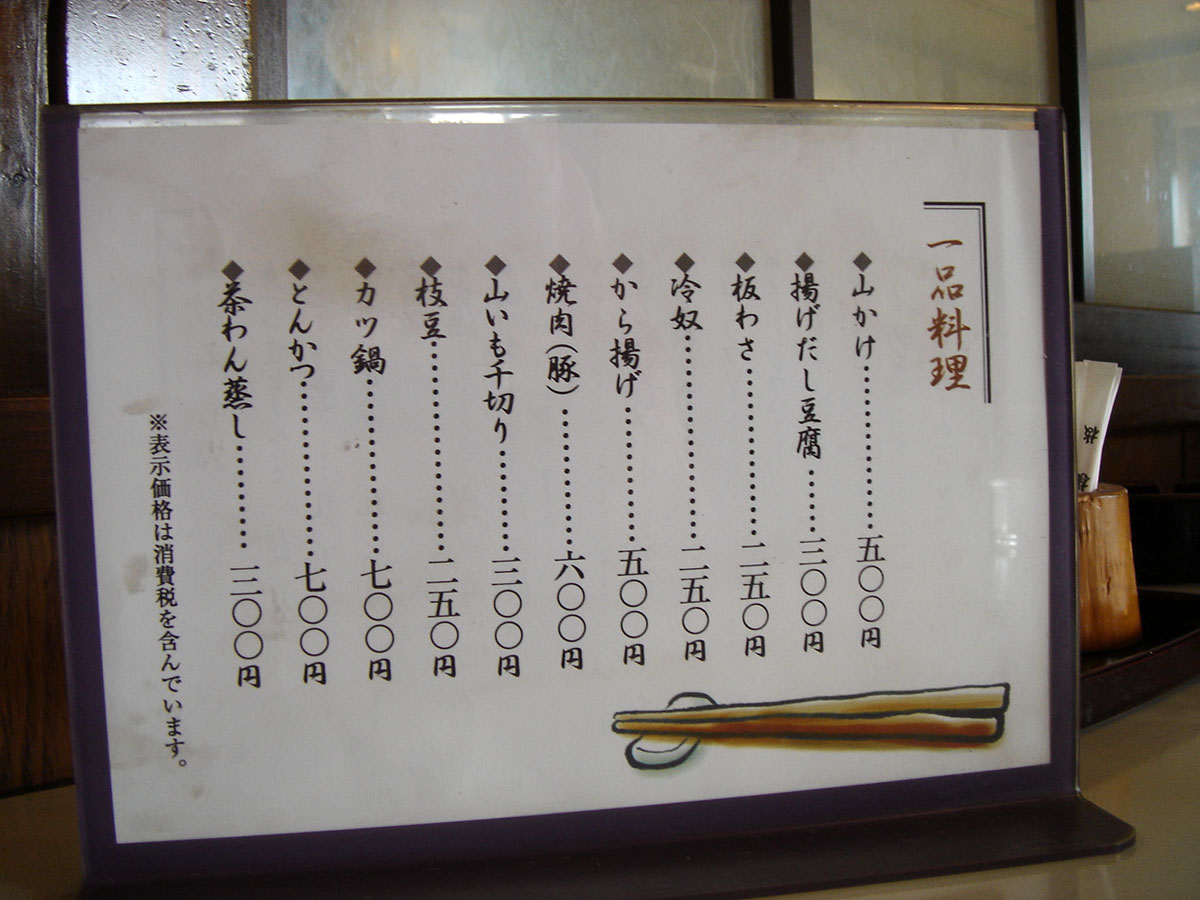 一品料理
◆山かけ……………五〇〇円
◆揚げだし豆腐……三〇〇円
◆板わさ……………二五〇円
◆冷奴………………二五〇円
◆から揚げ…………五〇〇円
◆焼肉(豚)…………六〇〇円
◆山いも千切り……三〇〇円
◆枝豆………………二五〇円
◆カツ鍋……………七〇〇円
◆とんかつ…………七〇〇円
◆茶わん蒸し………三〇〇円
※表示価格は消費税を含んでいます。